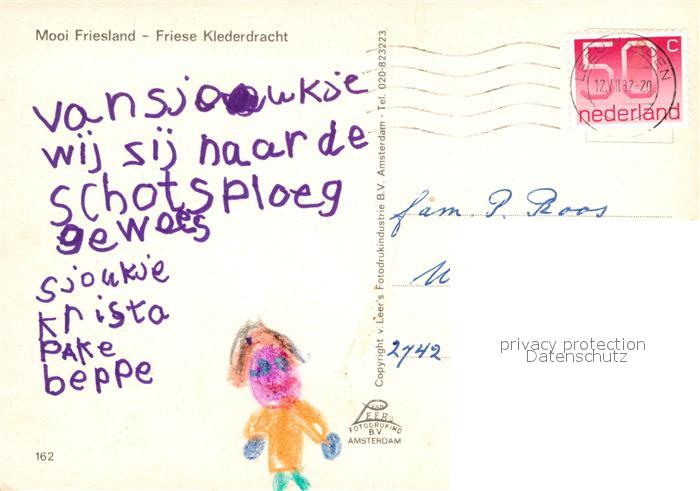 Mooi Friesland – Friese Klederdracht
van sjoukje
wij sij naar de
schotsploeg
gewees
sjoukje
krista
PAKE
beppe
162
Copyright v. Leer's Fotodrukindustrie B.V. Amsterdam - Tel. 020-823223
VAN
LEER'S
FOTODRUKIND
B.V.
AMSTERDAM
50c
nederland
fam. P. Roos
2742
privacy protection
Datenschutz